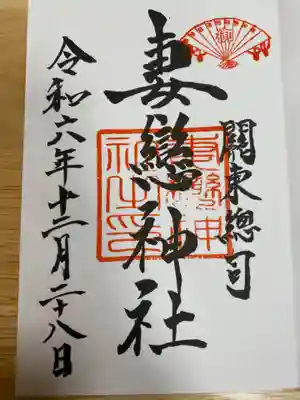 關東總司
妻戀神社
令和六年十二月二十八日